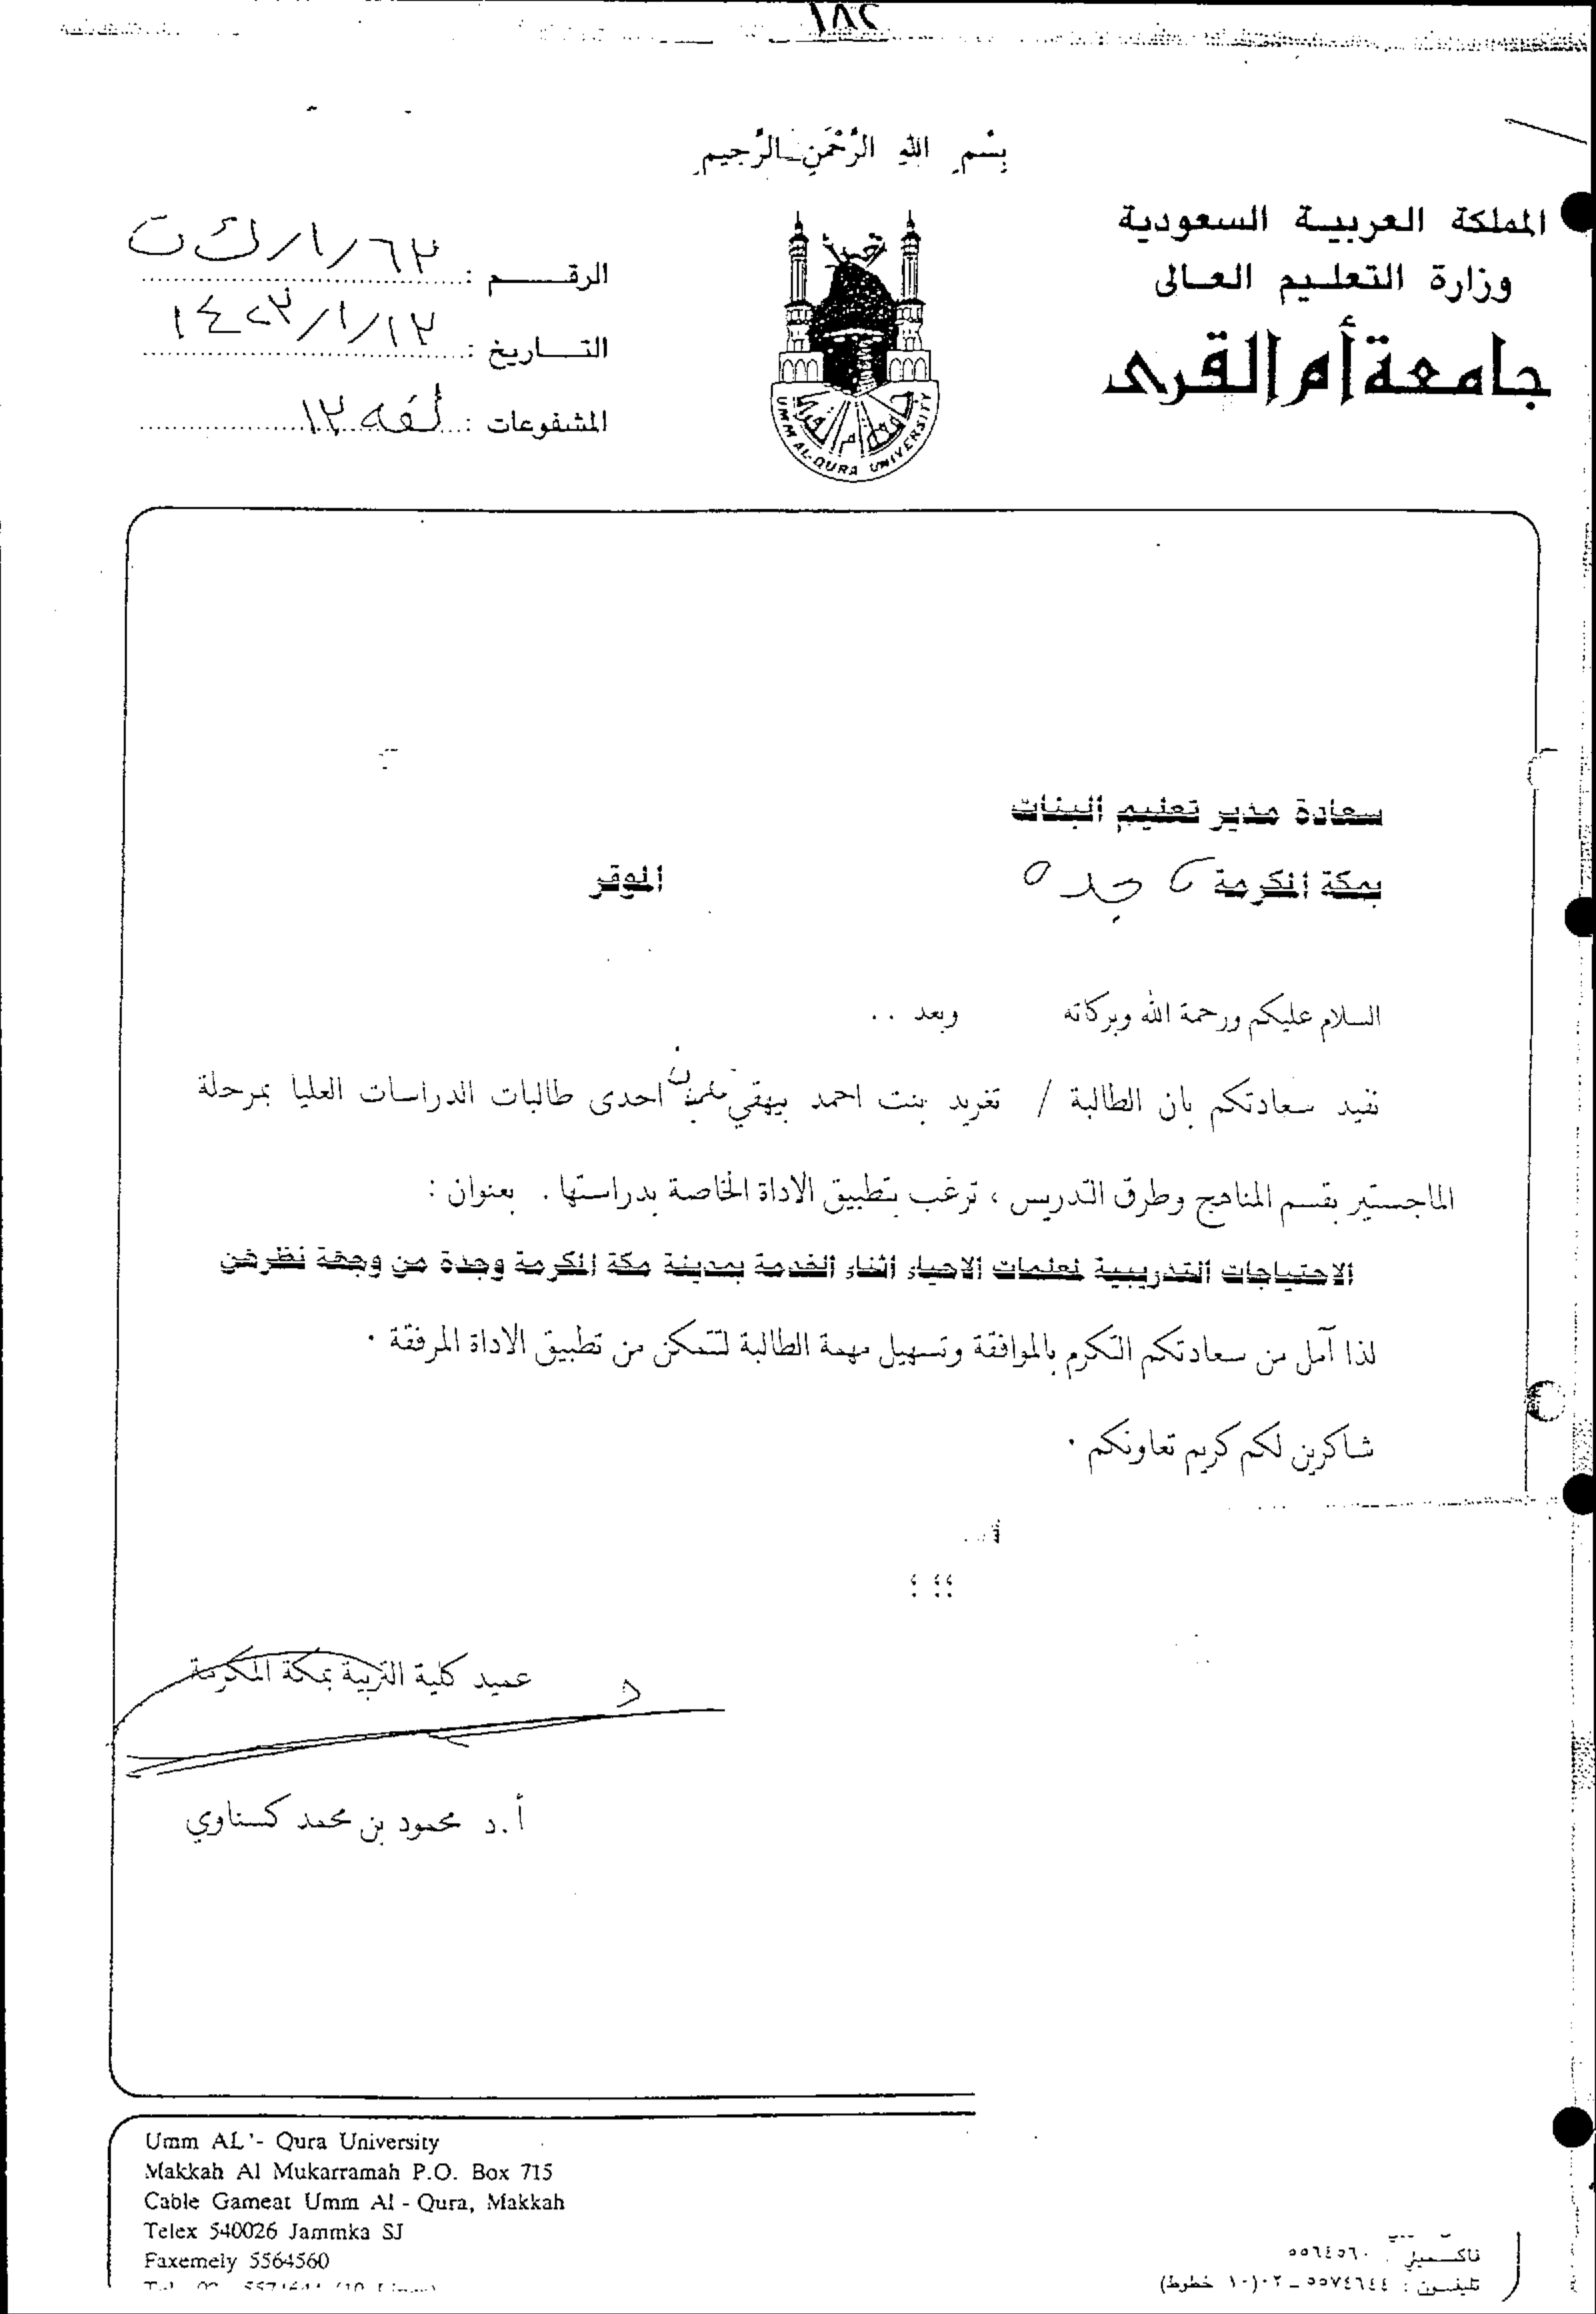 ١٨٢
بِسْمِ اللهِ الرَّحْمَنِ الرَّحِيمِ
المملكة العربية السعودية
وزارة التعليم العالى
جامعة أم القرى
الرقم : ٦٣/١/ك ت
التاريخ : ١٤٢٣/١/١٣
المشفوعات : لفه ١٣
UMM AL-QURA UNIVERSITY
سعادة مدير تعليم البنات
بمكة المكرمة و جده الموقر
السلام عليكم ورحمة الله وبركاته وبعد ..
نفيد سعادتكم بان الطالبة / تغريد بنت احمد بيهقي احدى طالبات الدراسات العليا بمرحلة
الماجستير بقسم المناهج وطرق التدريس ، ترغب بتطبيق الاداة الخاصة بدراستها . بعنوان :
الاحتياجات التدريبية لمعلمات الاحياء اثناء الخدمة بمدينة مكة المكرمة وجدة من وجهة نظرهن
لذا آمل من سعادتكم التكرم بالموافقة وتسهيل مهمة الطالبة لتتمكن من تطبيق الاداة المرفقة .
شاكرين لكم كريم تعاونكم .
عميد كلية التربية بمكة المكرمة
أ.د محمود بن محمد كسناوي
Umm AL'- Qura University
Makkah Al Mukarramah P.O. Box 715
Cable Gameat Umm Al - Qura, Makkah
Telex 540026 Jammka SJ
Faxemely 5564560
فاكسميلي : ٥٥٦٤٥٦٠
تليفون : ٥٥٧٤٦٤٤ - ٠٢ (١٠ خطوط)